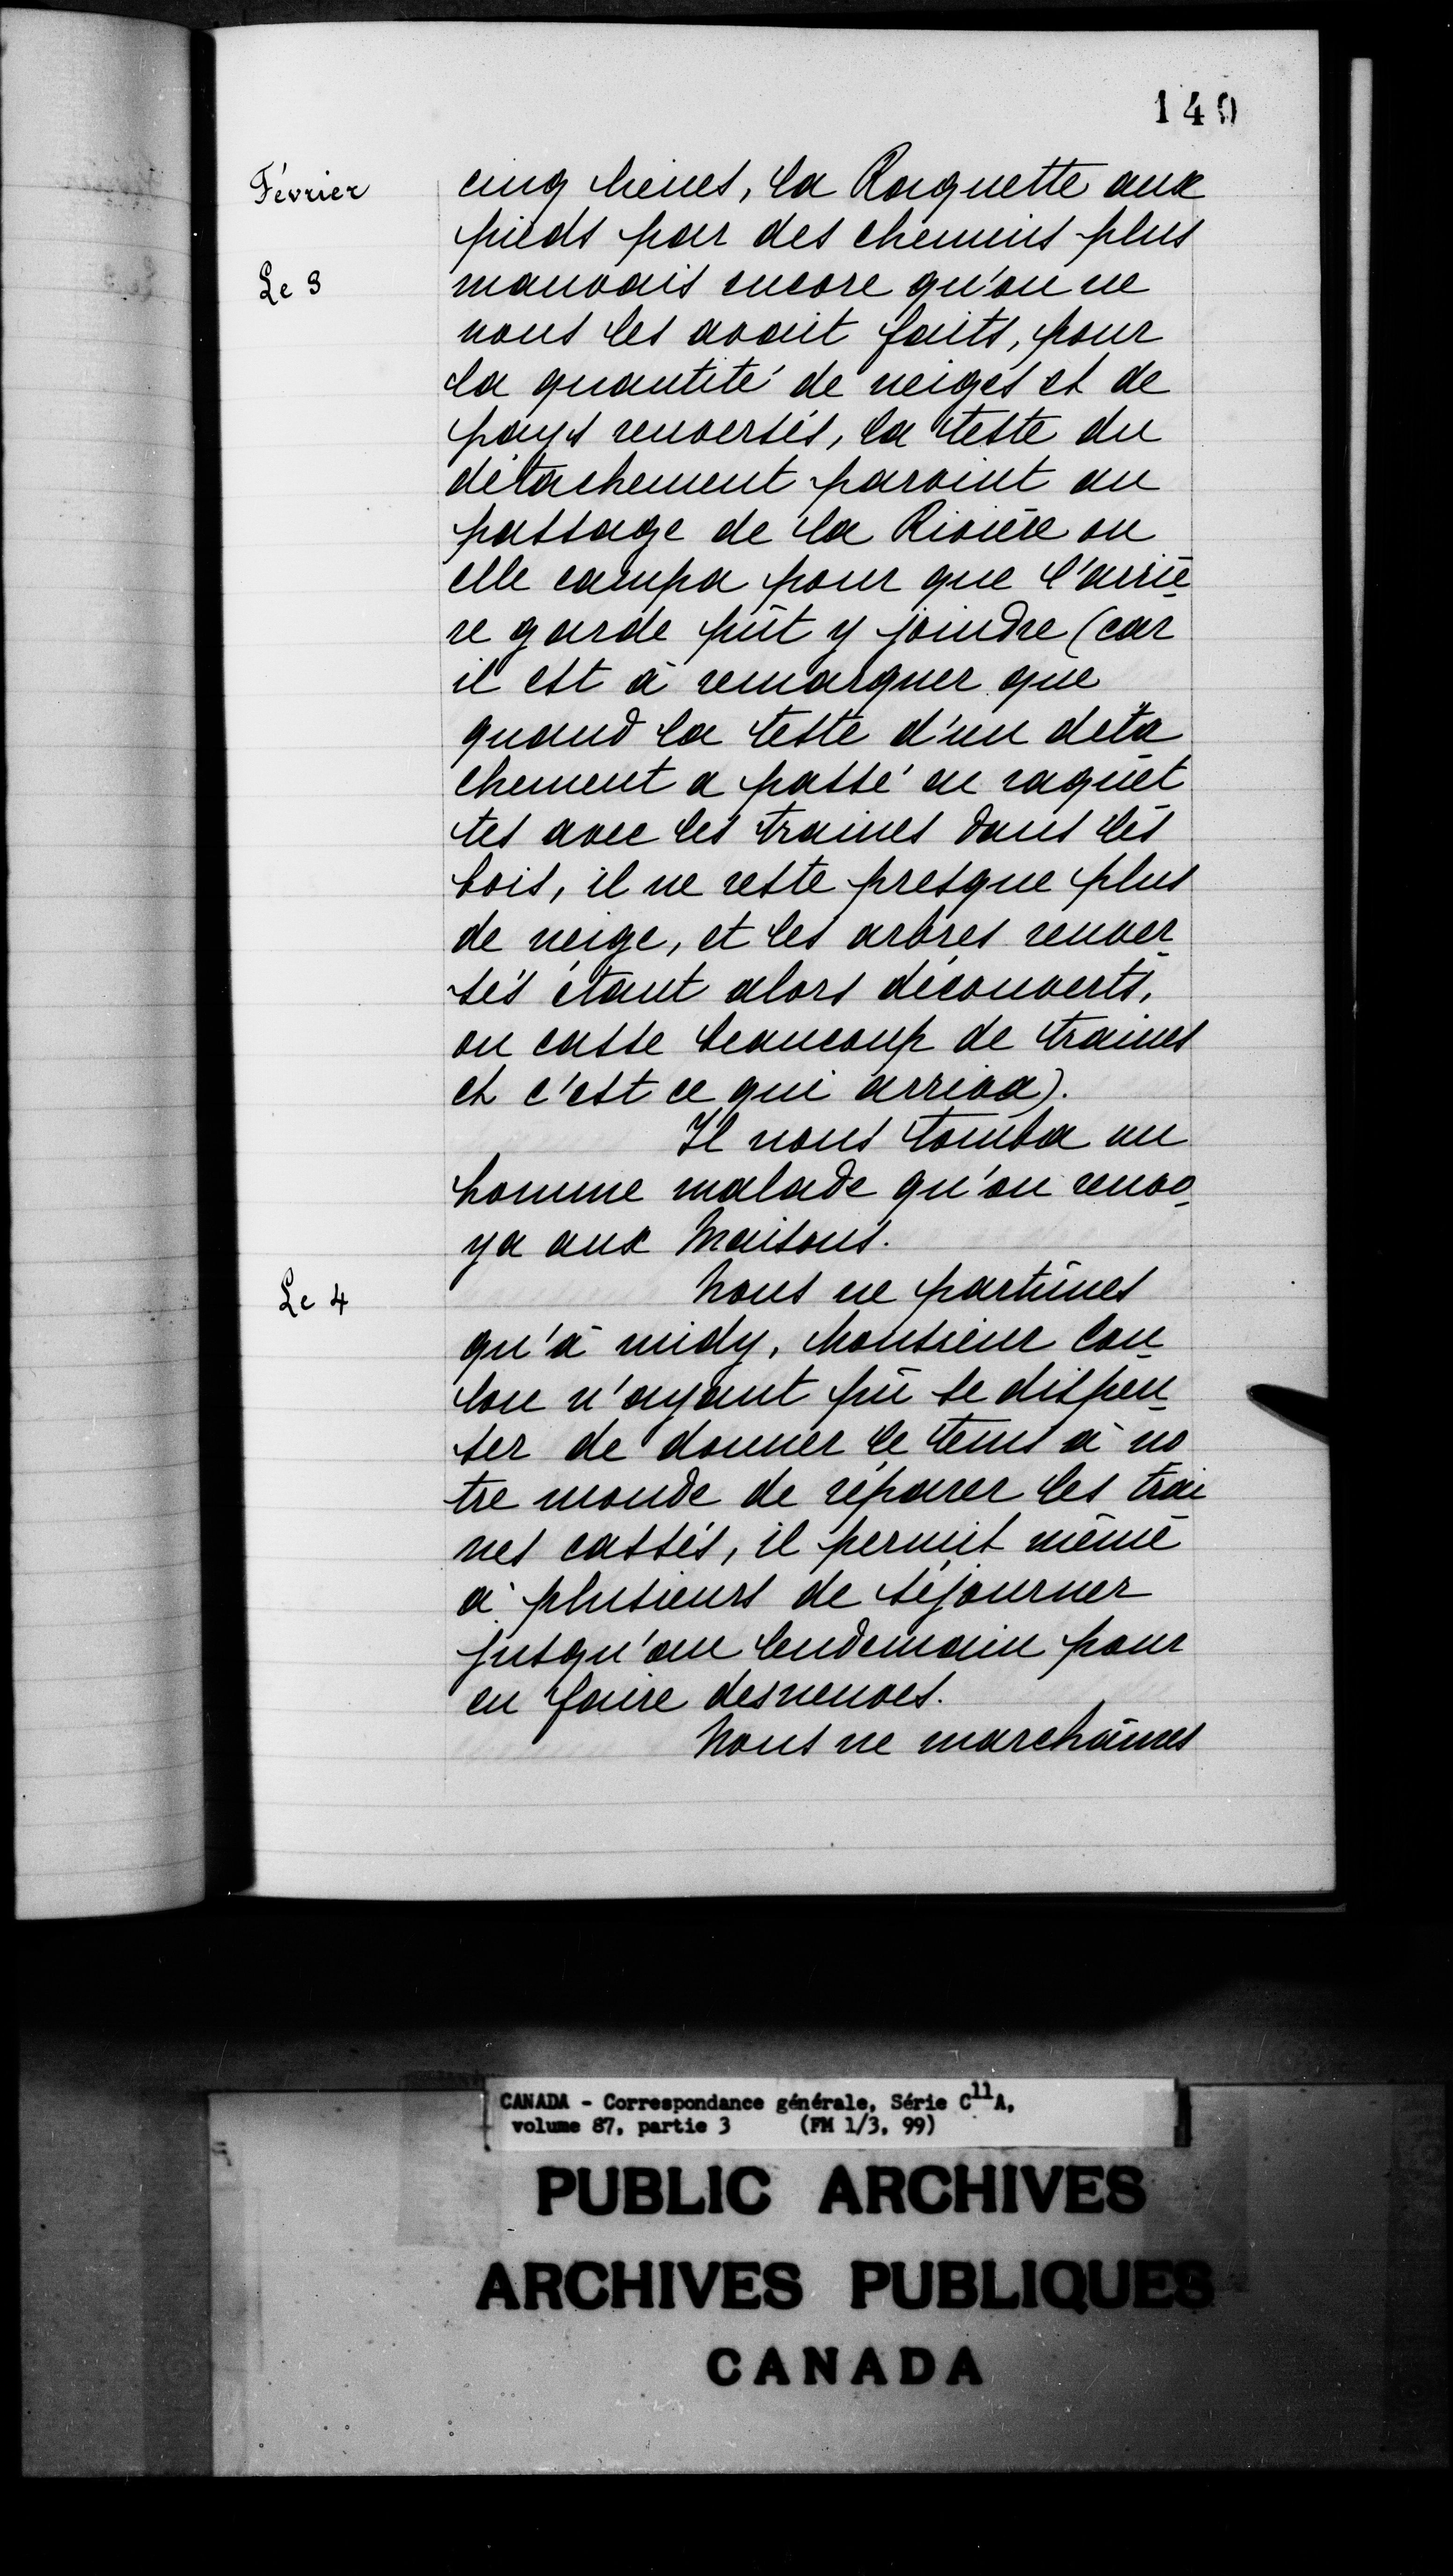 140
Février
cinq lieues, la Raquette aux
pieds par des chemins plus
Le 3
mauvais encore qu'on ne
nous les avait faits, pour
la quantité de neiges et de
pays renversés, la teste du
détachement parvint au
passage de la Rivière ou
elle campa pour que l'arriè
re garde pût y joindre (car
il est à remarquer que
quand la teste d'un déta
chement a passé en raquet
tes avec les traines dans les
bois, il ne reste presque plus
de neige, et les arbres renver
sés étant alors découverts,
on casse beaucoup de traines
et c'est ce qui arriva).
Il nous tomba un
homme malade qu'on renvo
ya aux Maisons.
Le 4
Nous ne partîmes
qu'à midy, Monsieur Cou
lon n'ayant pû se dispen
ser de donner le tems à no
tre monde de réparer les trai
nes cassés, il permit même
à plusieurs de séjourner
jusqu'au lendemain pour
en faire des neuves.
Nous ne marchâmes
CANADA - Correspondance générale, Série C11A,
volume 87, partie 3 (FM 1/3, 99)
PUBLIC ARCHIVES
ARCHIVES PUBLIQUES
CANADA